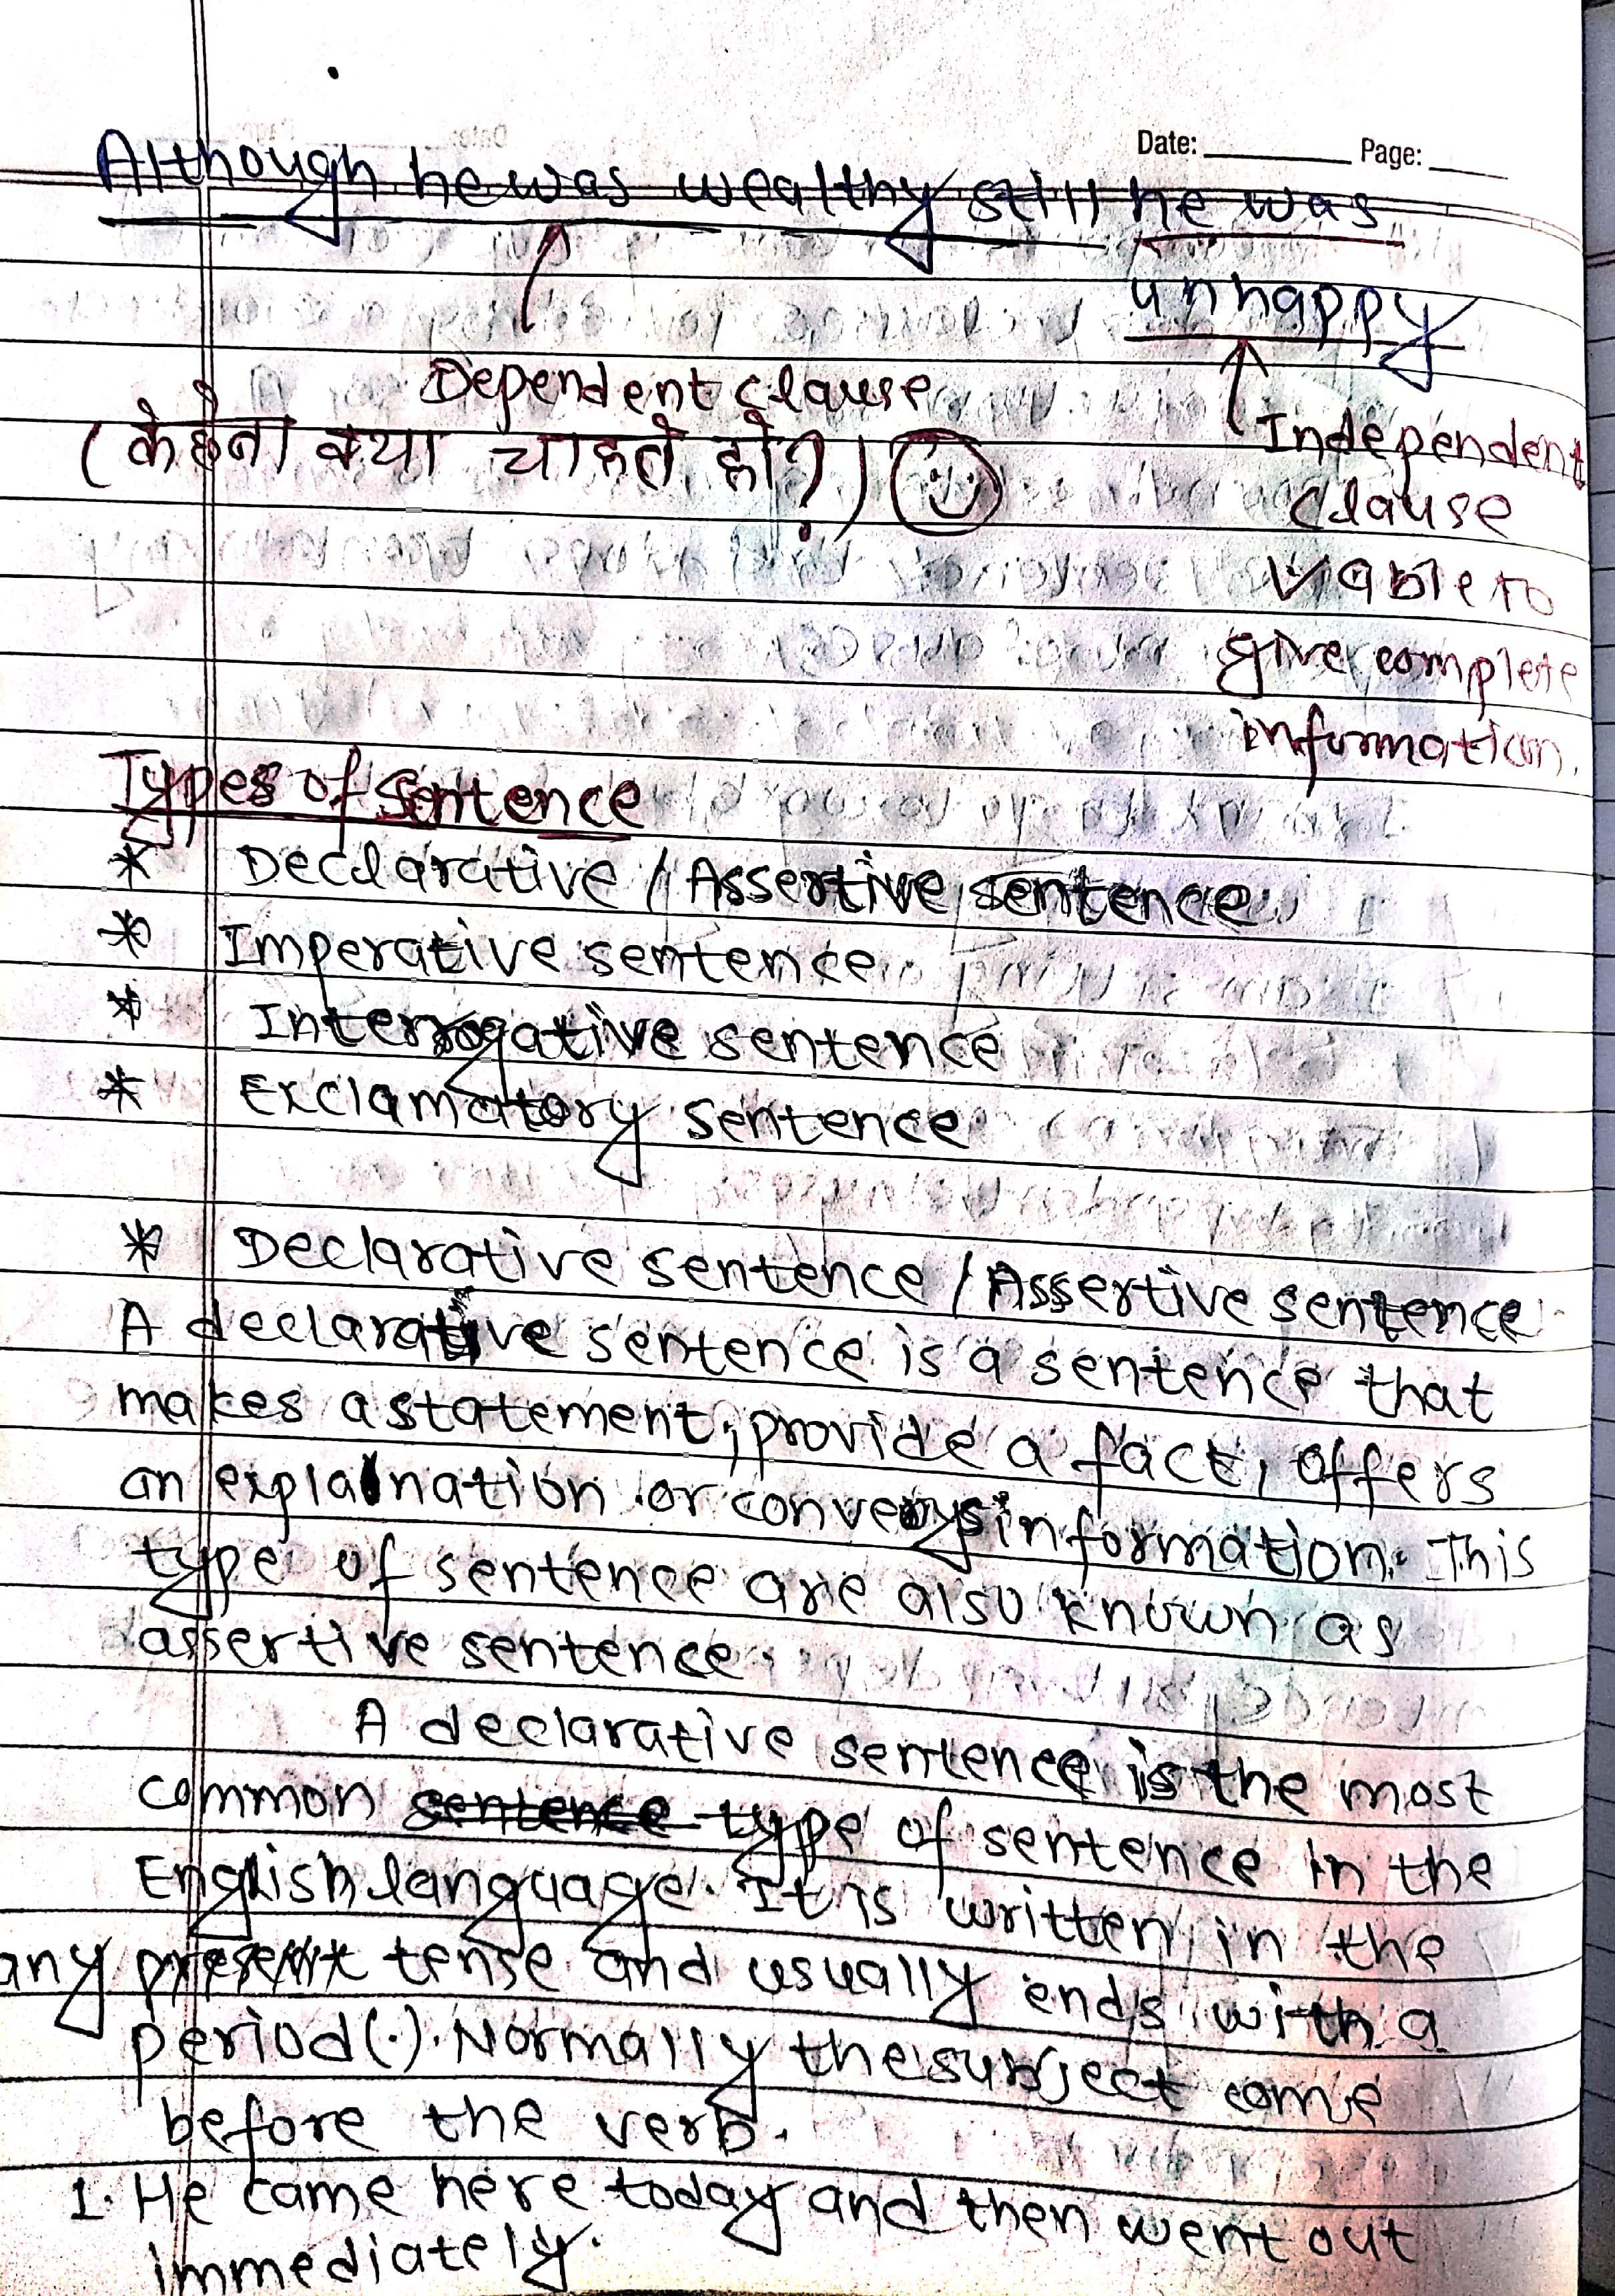 Date: Page:
Although he was wealthy still he was
unhappy
Dependent clause
(केहेना क्या चाहते हो?)
Independent
clause
able to
give complete
information.
Types of sentence
* Declarative / Assertive sentence
* Imperative sentence
* Interrogative sentence
* Exclamatory sentence
* Declarative sentence / Assertive sentence
A declarative sentence is a sentence that
makes a statement, provide a fact, offers
an explaination or conveys information. This
type of sentence are also known as
assertive sentence.
A declarative sentence is the most
common sentence type of sentence in the
English language. It is written in the
any present tense and usually ends with a
period(.). Normally the subject come
before the verb.
1. He came here today and then went out
immediately.